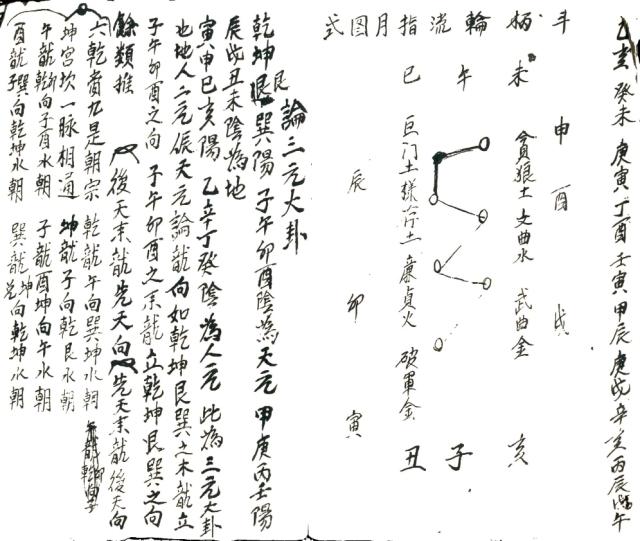 乙亥 癸未 庚寅 丁酉 壬寅 甲辰 庚戌 辛亥 丙辰 午
斗柄輪流指月圖式
巳 午 未 申 酉 戌 亥 子 丑 寅 卯 辰
貪狼土 文曲水 武曲金
巨门土 祿存土 廉貞火 破軍金
論三元大卦
乾坤艮巽陽 子午卯酉陰為天元 甲庚丙壬陽
辰戌丑未陰為地
寅申巳亥陽 乙辛丁癸陰 為人元 此為三元大卦
也地人二元依天元論龍向如乾坤艮巽之木龍立
子午卯酉之向 子午卯酉之末龍立乾坤艮巽之向
餘類推 後天末龍先天向 先天末龍後天向
六乾有九是朝宗 乾龍午向巽坤水朝
坤宮坎一脉相通 坤龍子向乾艮水朝
午龍向子酉水朝 子龍酉坤向午水朝
酉龍巽向乾坤水朝 巽龍坤向乾坤水朝